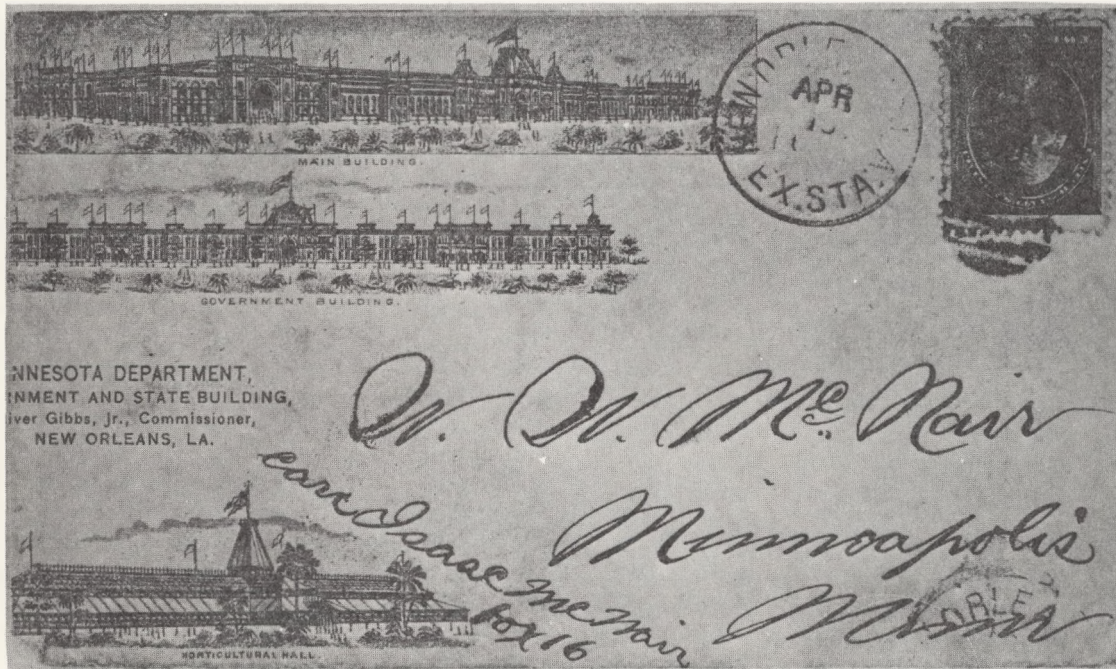 MAIN BUILDING.
GOVERNMENT BUILDING.
NEW ORLE
APR
EX.STA.
NNESOTA DEPARTMENT,
NMENT AND STATE BUILDING,
iver Gibbs, Jr., Commissioner,
NEW ORLEANS, LA.
W. W. McNair
Minneapolis
Minn
care Isaac McNair
box 16
ORLE
HORTICULTURAL HALL.